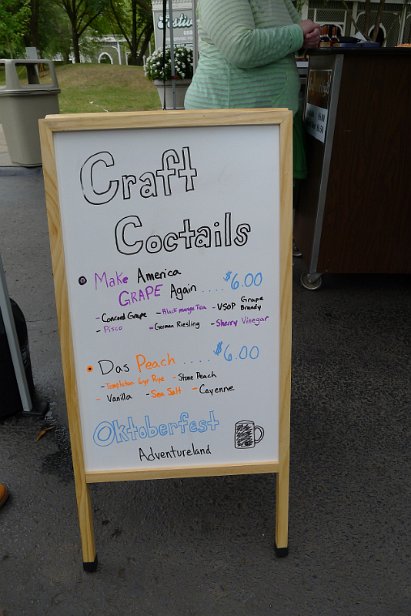 Craft
Coctails
Make America
GRAPE Again .... $6.00
- Concord Grape - Black mango Tea - VSOP Grape Brandy
- Pisco - German Riesling - Sherry Vinegar
Das Peach .... $6.00
- Templeton 6yr Rye - Stone Peach
- Vanilla - Sea Salt - Cayenne
Oktoberfest
Adventureland